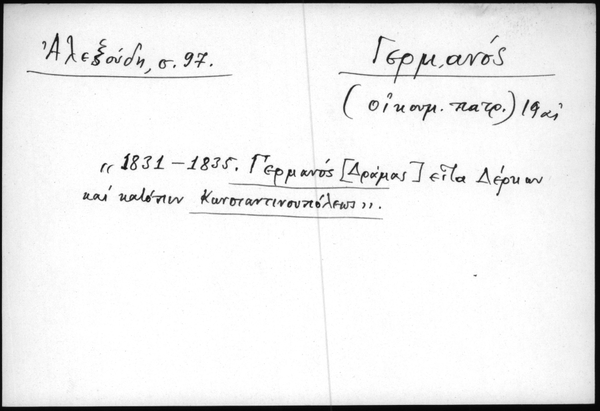 Ἀλεξούδη, σ. 97.
Γερμανός
(οἰκουμ. πατρ.) 19 αἰ
« 1831 – 1835. Γερμανός [Δράμας] εἶτα Δέρκων
καί κατόπιν Κωνσταντινουπόλεως ».